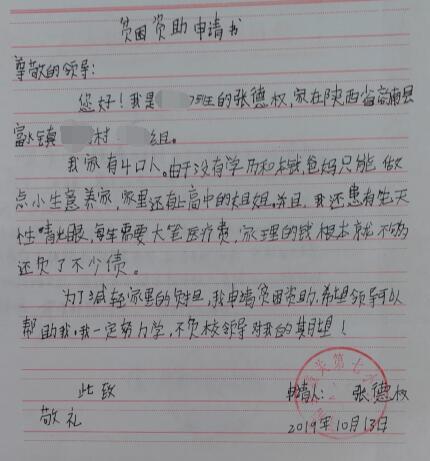 贫困资助申请书
尊敬的领导:
您好!我是班的张德权,家在陕西省商南县
富水镇村组。
我家有4口人。由于没有学历和本钱,爸妈只能做
点小生意养家,家里还有上高中的姐姐。并且,我还患有先天
性青光眼,每年需要大笔医疗费,家里的钱根本就不够
还欠了不少债。
为了减轻家里的负担,我申请贫困资助,希望领导可以
帮助我,我一定努力学,不负校领导对我的期望!
此致
申请人:张德权
敬礼
2019年10月13日